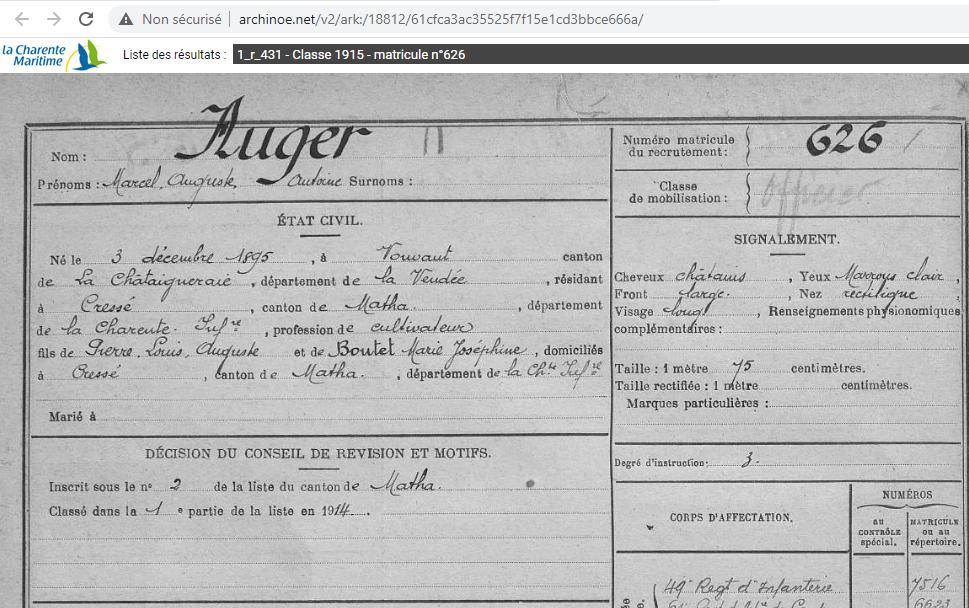 Non sécurisé | archinoe.net/v2/ark:/18812/61cfca3ac35525f7f15e1cd3bbce666a/
la Charente Maritime
Liste des résultats : 1_r_431 - Classe 1915 - matricule n°626
Nom : Auger
Prénoms : Marcel, Auguste, Antoine Surnoms :
Numéro matricule du recrutement : 626
Classe de mobilisation : Officier
ÉTAT CIVIL.
Né le 3 décembre 1895, à Vouvant canton
de La Châtaigneraie, département de la Vendée, résidant
à Cressé, canton de Matha, département
de la Charente Infre, profession de cultivateur
fils de Pierre, Louis, Auguste et de Boutet Marie Joséphine, domiciliés
à Cressé, canton de Matha, département de la Chte Infre
Marié à
DÉCISION DU CONSEIL DE REVISION ET MOTIFS.
Inscrit sous le no 2 de la liste du canton de Matha.
Classé dans la 1 e partie de la liste en 1914
SIGNALEMENT.
Cheveux châtains, Yeux Marrons clair,
Front large, Nez rectiligne,
Visage long, Renseignements physionomiques
complémentaires :
Taille : 1 mètre 75 centimètres.
Taille rectifiée : 1 mètre centimètres.
Marques particulières :
Degré d'instruction : 3.
CORPS D'AFFECTATION.
NUMÉROS
au CONTRÔLE spécial.
MATRICULE ou au répertoire.
49e Regt d'Infanterie 7516
6623